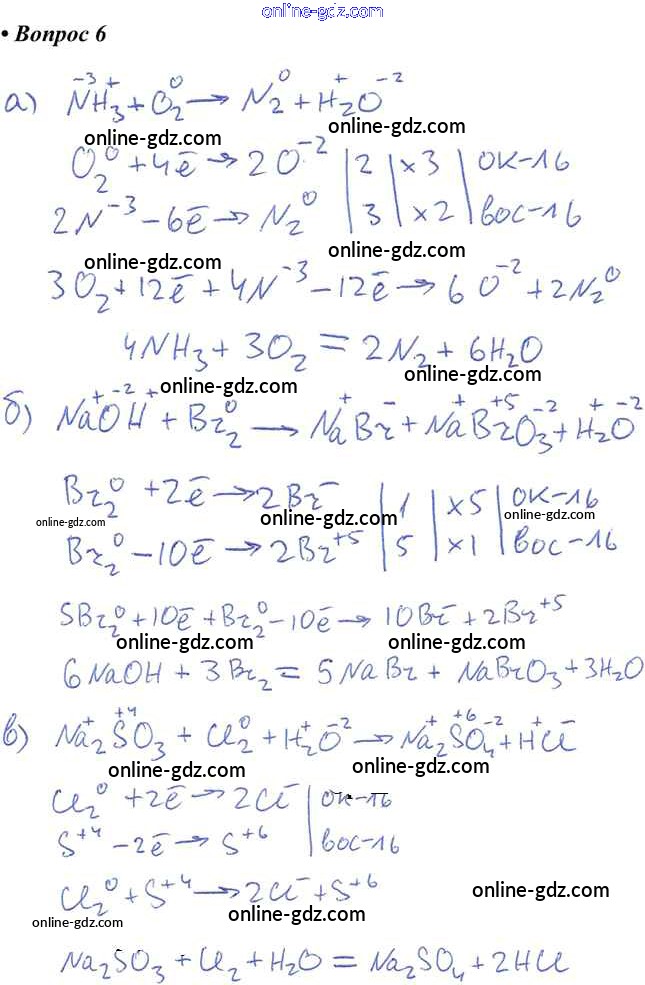 online-gdz.com
• Вопрос 6
а) N⁻³H₃⁺ + O₂⁰ → N₂⁰ + H₂⁺O⁻²
online-gdz.com
online-gdz.com
O₂⁰ + 4ē → 2O⁻² | 2 | ×3 | ок-ль
2N⁻³ - 6ē → N₂⁰ | 3 | ×2 | вос-ль
online-gdz.com
online-gdz.com
3O₂ + 12ē + 4N⁻³ - 12ē → 6O⁻² + 2N₂⁰
4NH₃ + 3O₂ = 2N₂ + 6H₂O
online-gdz.com
online-gdz.com
б) Na⁺O⁻²H⁺ + Br₂⁰ → Na⁺Br⁻ + Na⁺Br⁺⁵O₃⁻² + H₂⁺O⁻²
Br₂⁰ + 2ē → 2Br⁻ | 1 | ×5 | ок-ль
online-gdz.com
online-gdz.com
online-gdz.com
Br₂⁰ - 10ē → 2Br⁺⁵ | 5 | ×1 | вос-ль
5Br₂⁰ + 10ē + Br₂⁰ - 10ē → 10Br⁻ + 2Br⁺⁵
online-gdz.com
online-gdz.com
6NaOH + 3Br₂ = 5NaBr + NaBrO₃ + 3H₂O
в) Na₂⁺S⁺⁴O₃ + Cl₂⁰ + H₂⁺O⁻² → Na₂⁺S⁺⁶O₄⁻² + H⁺Cl⁻
online-gdz.com
online-gdz.com
Cl₂⁰ + 2ē → 2Cl⁻ | ок-ль
S⁺⁴ - 2ē → S⁺⁶ | вос-ль
Cl₂⁰ + S⁺⁴ → 2Cl⁻ + S⁺⁶
online-gdz.com
online-gdz.com
online-gdz.com
Na₂SO₃ + Cl₂ + H₂O = Na₂SO₄ + 2HCl